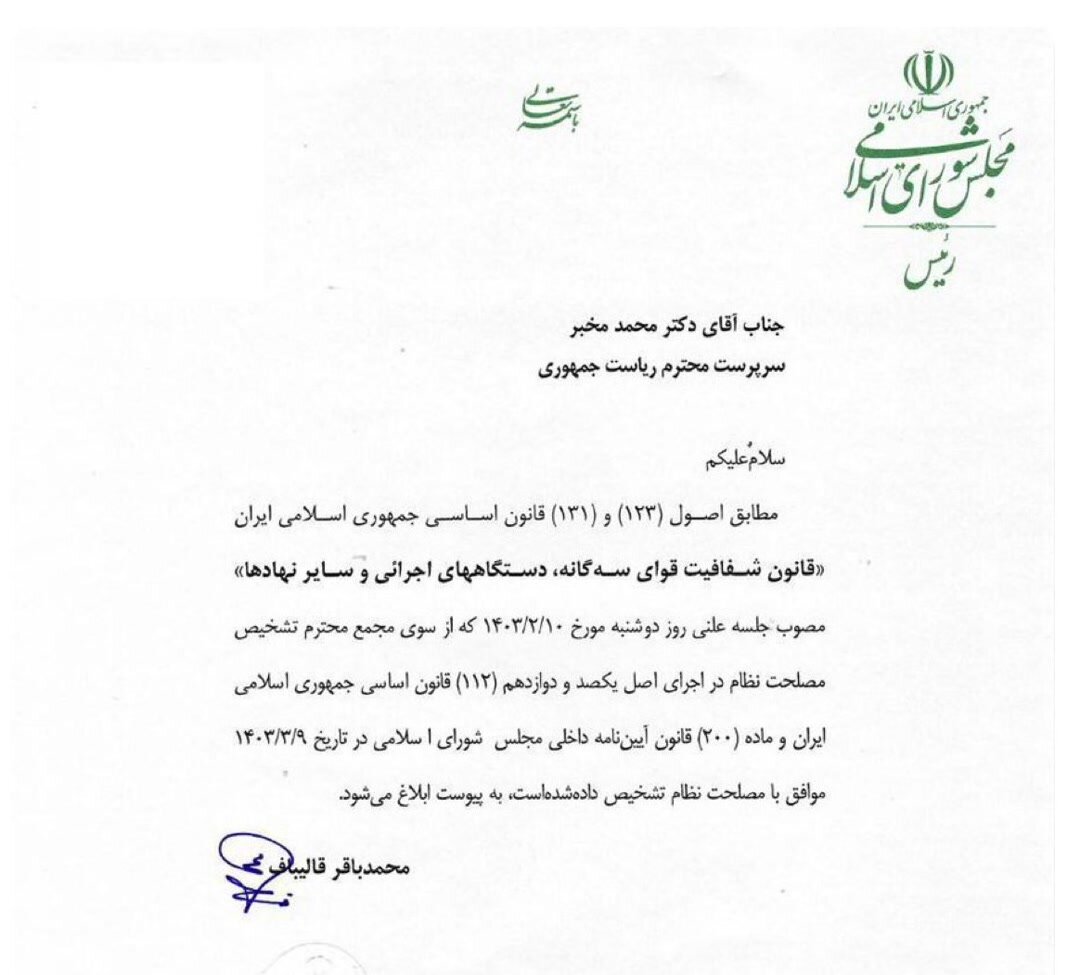 باسمه تعالی
جمهوری اسلامی ایران
مجلس شورای اسلامی
رئیس
جناب آقای دکتر محمد مخبر
سرپرست محترم ریاست جمهوری
سلامٌ‌علیکم
مطابق اصول (۱۲۳) و (۱۳۱) قانون اساسی جمهوری اسلامی ایران
«قانون شفافیت قوای سه‌گانه، دستگاههای اجرائی و سایر نهادها»
مصوب جلسه علنی روز دوشنبه مورخ ۱۴۰۳/۲/۱۰ که از سوی مجمع محترم تشخیص
مصلحت نظام در اجرای اصل یکصد و دوازدهم (۱۱۲) قانون اساسی جمهوری اسلامی
ایران و ماده (۲۰۰) قانون آیین‌نامه داخلی مجلس شورای ا سلامی در تاریخ ۱۴۰۳/۳/۹
موافق با مصلحت نظام تشخیص داده‌شده‌است، به پیوست ابلاغ می‌شود.
محمدباقر قالیباف